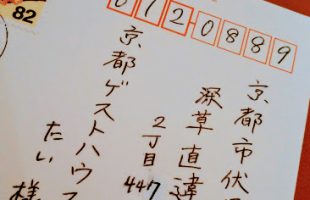 82
612-0889
京都市伏
深草直違
2丁目447
京都ゲストハウス
たい様